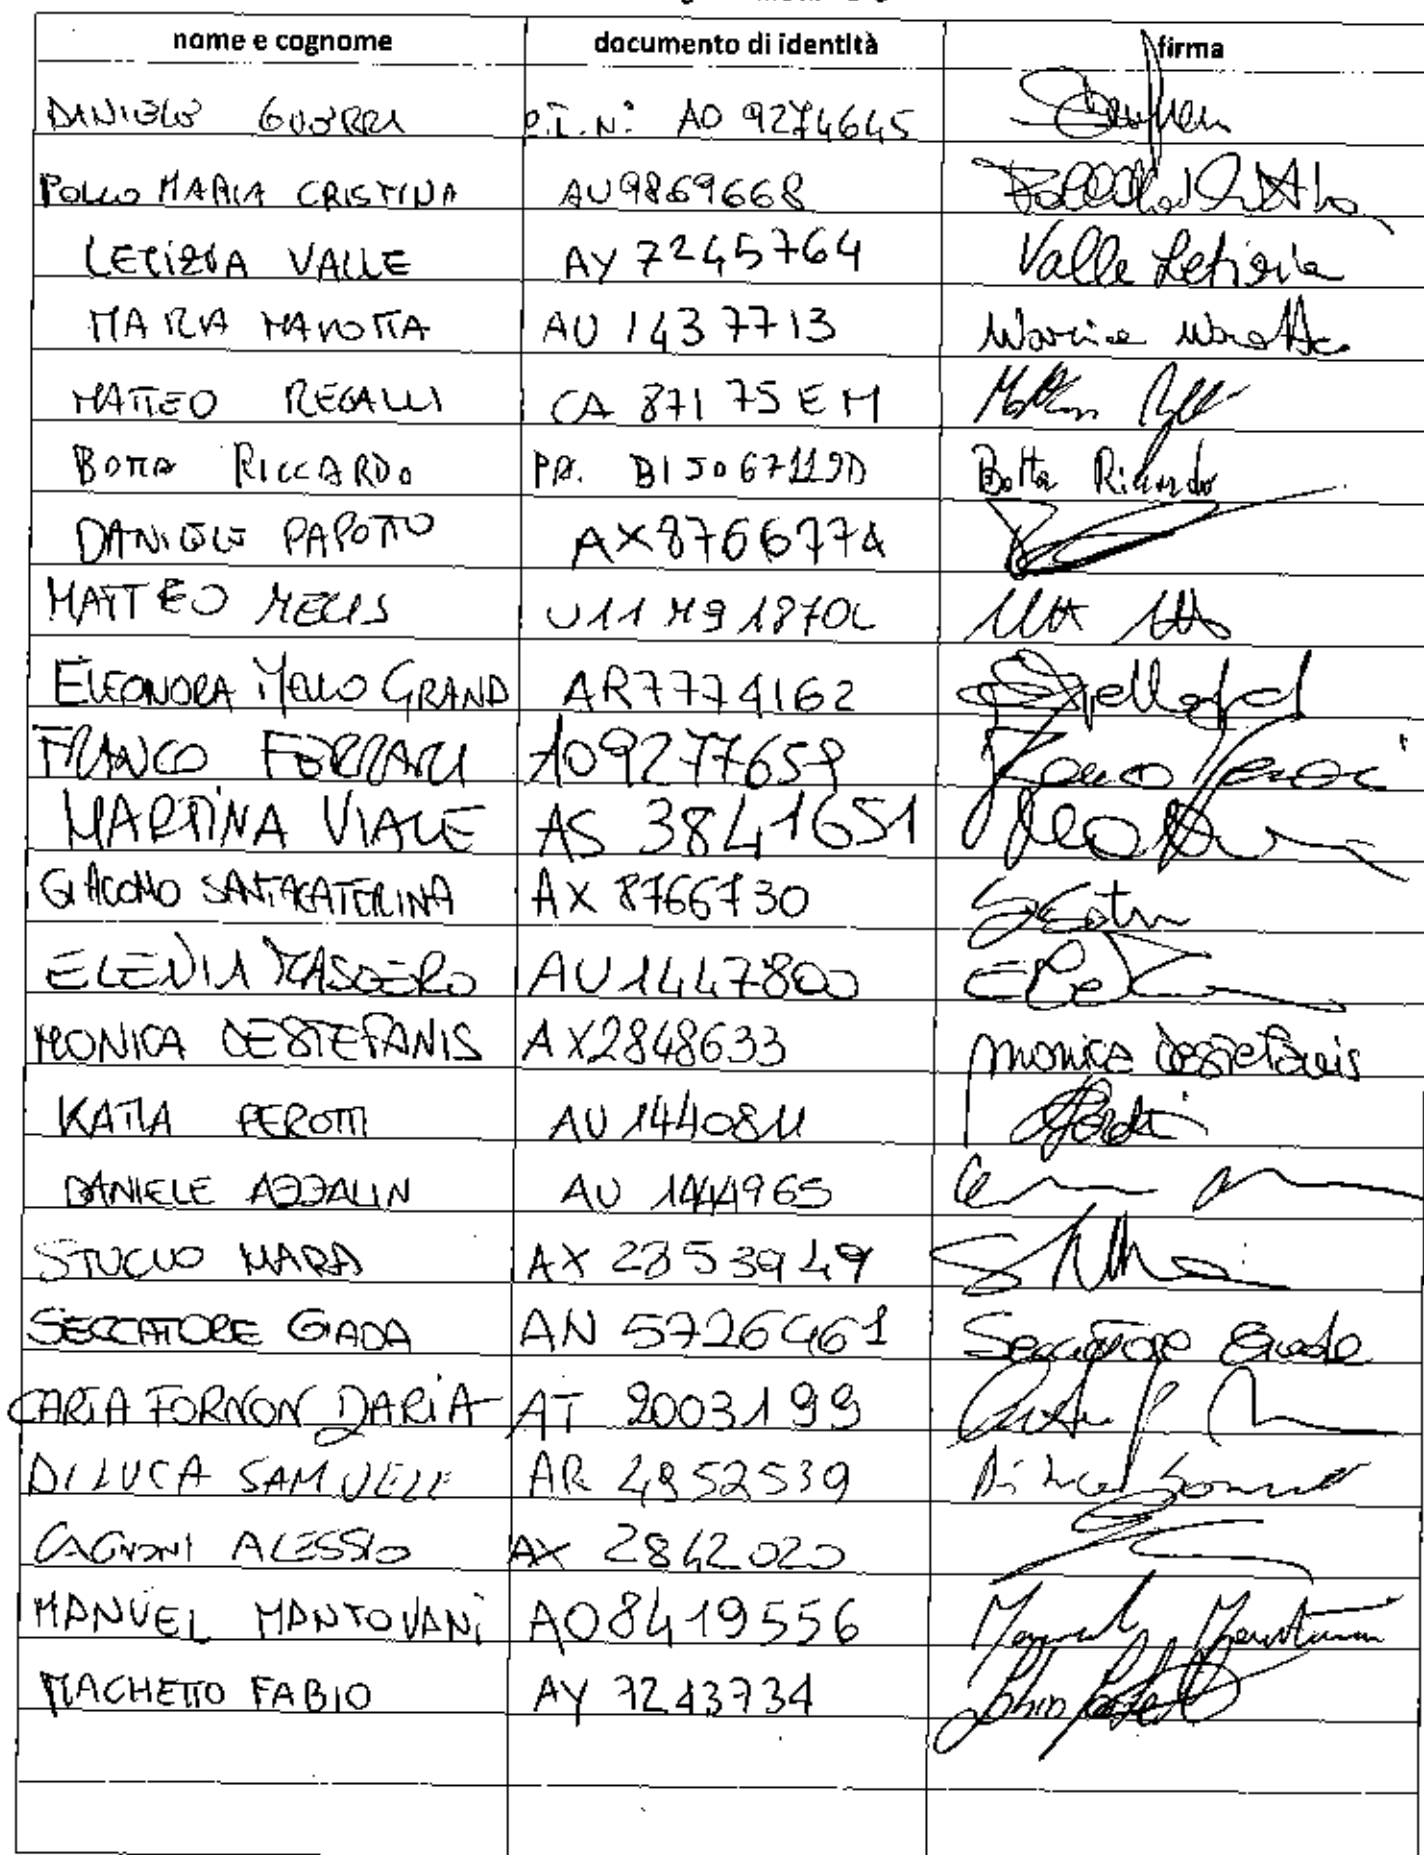 nome e cognome documento di identità firma
DANIELE GUERRA C.I. N° AO 9274645
POLLO MARIA CRISTINA AU9869668
LETIZIA VALLE AY 7245764 Valle Letizia
MARIA MAROTTA AU 1437713
MATTEO REGALLI CA 87175EM
BOTTA RICCARDO PA. BI5067119D Botta Riccardo
DANIELE PAPOTTO AX8766774
MATTEO MELIS U11M91870L
ELEONORA MELLO GRAND AR7774162
FRANCO FERRARI AO9277659 Franco Ferrari
MARTINA VIALE AS 3841651
GIACOMO SANTACATERINA AX 8766730
ELENIA MASOERO AU1447800
MONICA DESTEFANIS AX2848633 Monica Destefanis
KATIA PEROTTI AU 1440811
DANIELE AZZALIN AU 1444965
STUCLIO MARA AX 2353949
SECCATORE GIADA AN 5726461 Seccatore Giada
CARTA FORNON DARIA AT 2003199
DI LUCA SAMUELE AR 4952539
CAGNONI ALESSIO AX 2842020
MANUEL MANTOVANI AO8419556 Manuel Mantovani
MACHETTO FABIO AY 7243734